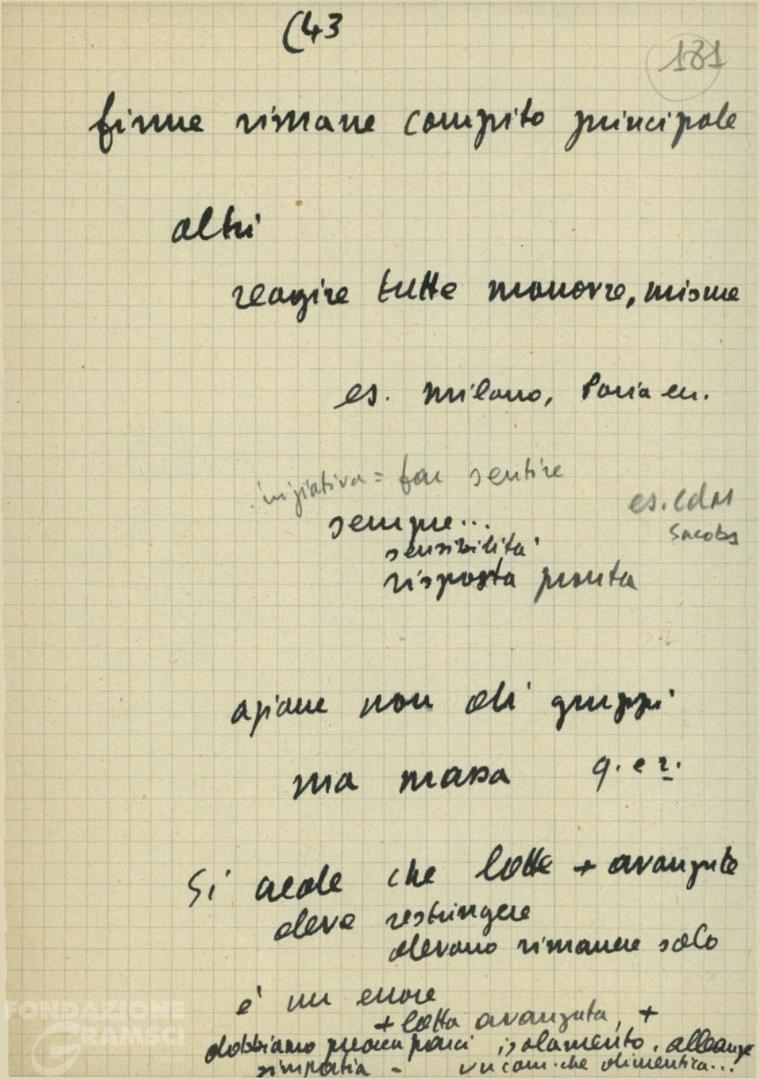 (43
181
firme rimane compito principale
altri
reagire tutte manovre, misure
es. Milano, Pavia ecc.
iniziativa = far sentire
es. CdM
sempre...
sensibilità
risposta pronta
azione non di gruppi
ma massa q. e r.
Si crede che lotte + avanzate
deve restringere
devono rimanere solo
è un errore
+ lotta avanzata, +
dobbiamo preoccuparci isolamento. alleanze
simpatia - un com. che dimentica...
FONDAZIONE
GRAMSCI